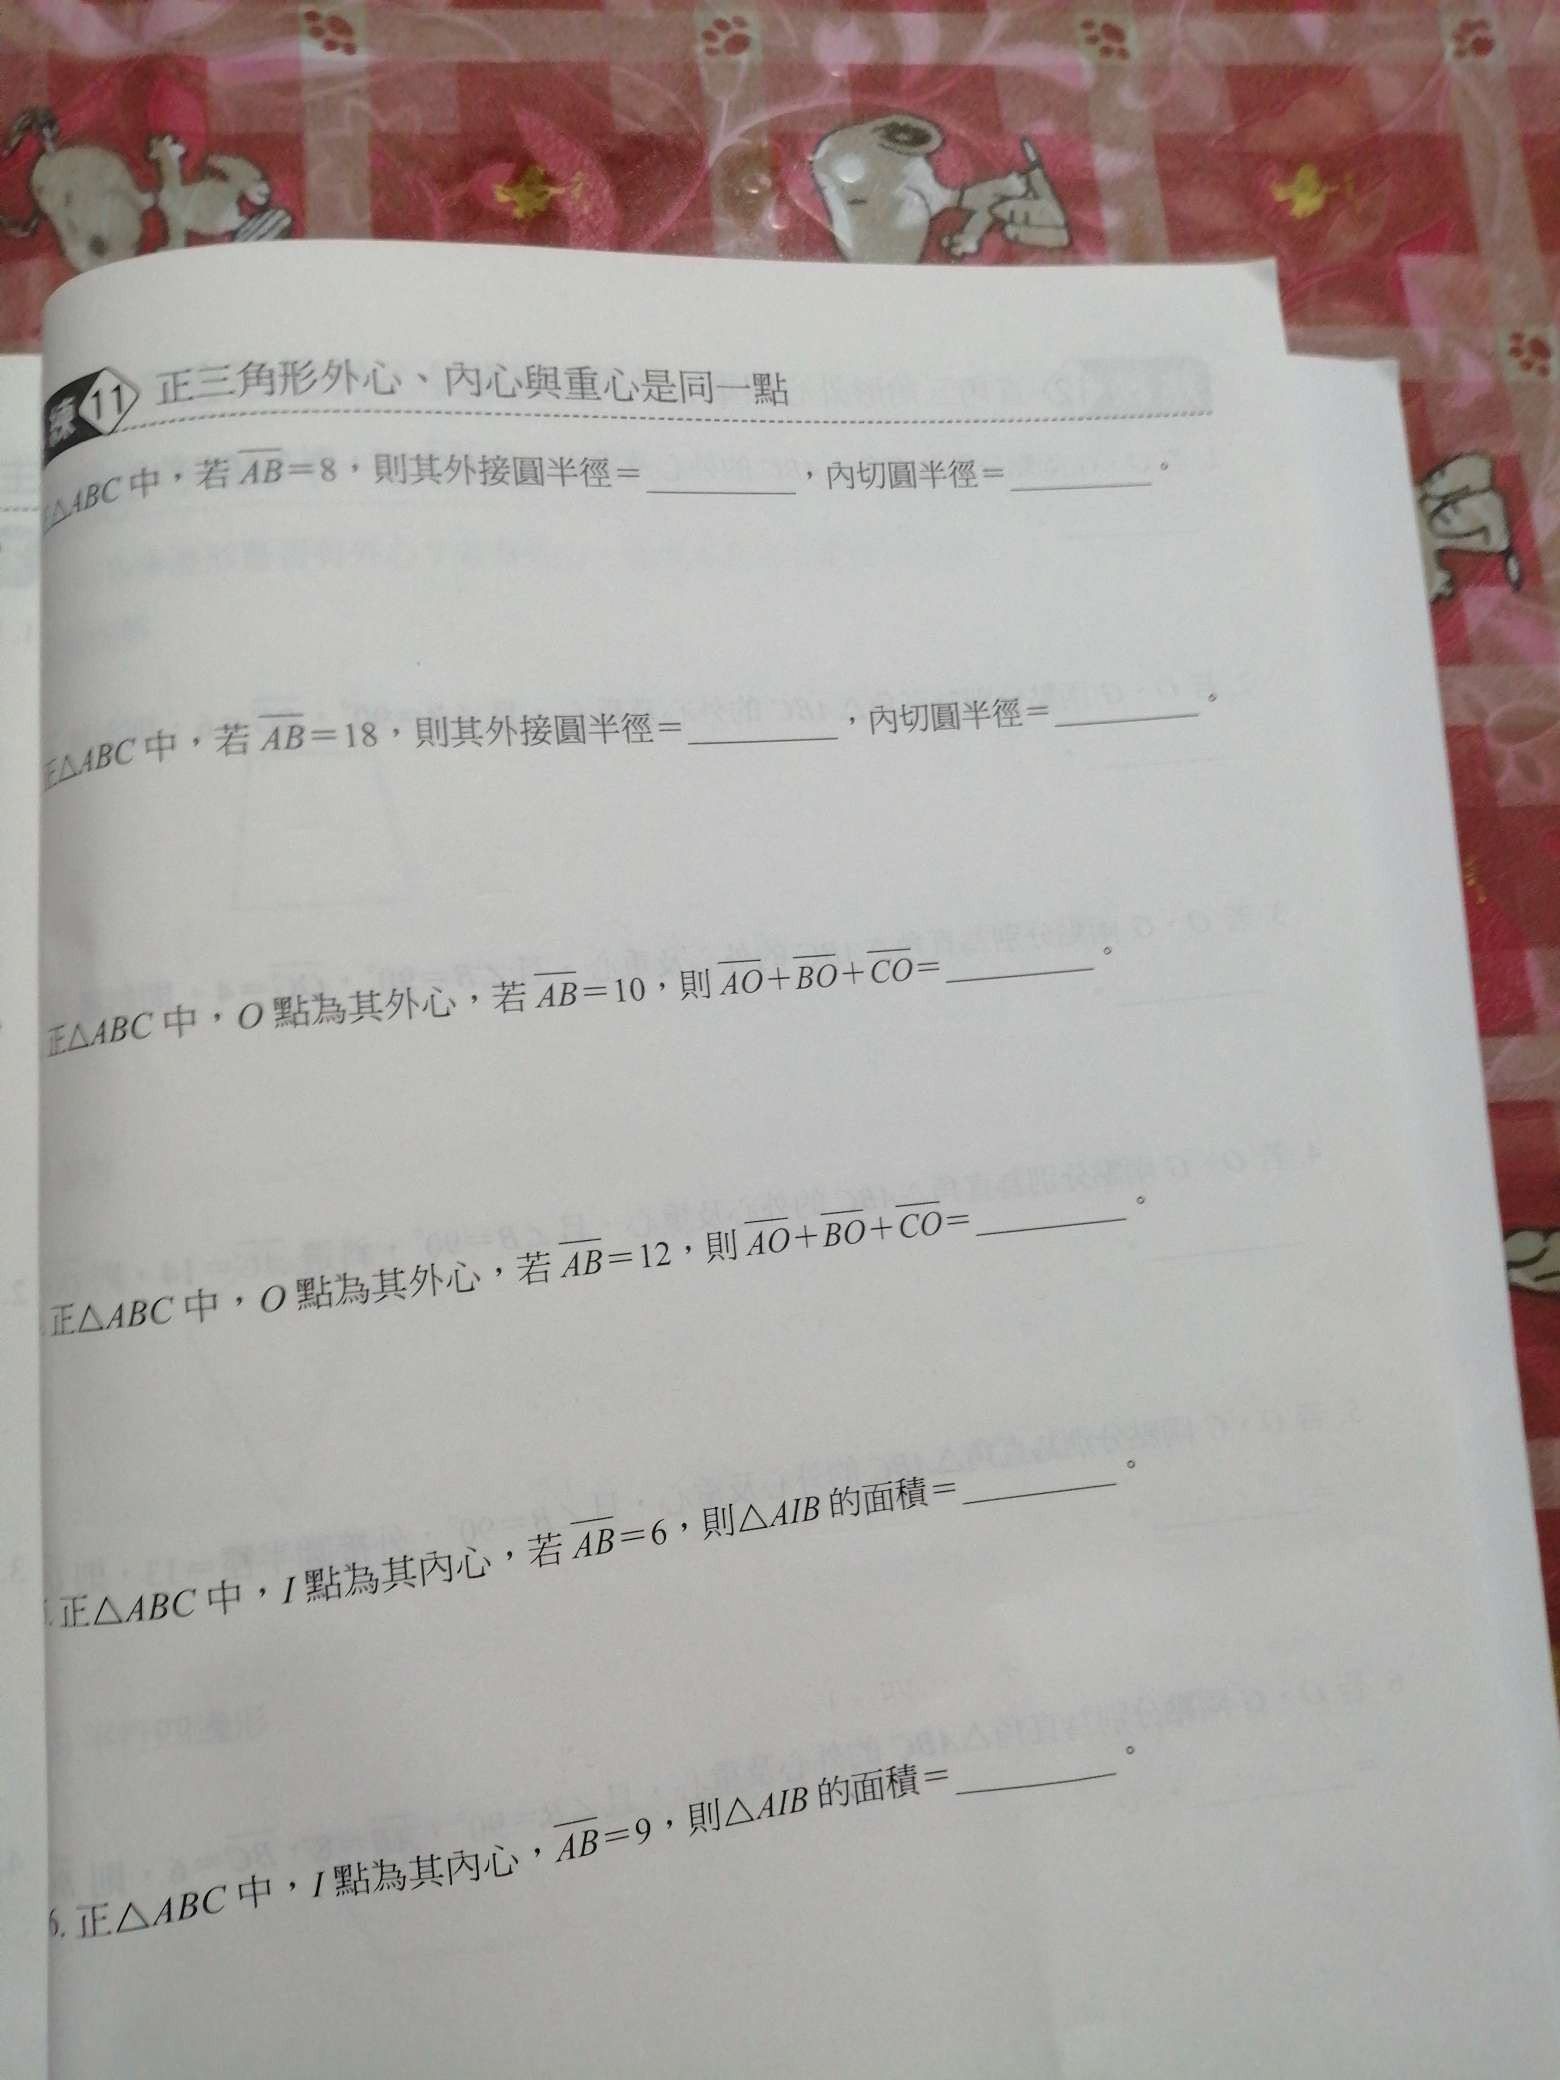 練11 正三角形外心、內心與重心是同一點
△ABC中，若AB=8，則其外接圓半徑=________，內切圓半徑=________。
正△ABC中，若AB=18，則其外接圓半徑=________，內切圓半徑=________。
正△ABC中，O點為其外心，若AB=10，則AO+BO+CO=________。
正△ABC中，O點為其外心，若AB=12，則AO+BO+CO=________。
正△ABC中，I點為其內心，若AB=6，則△AIB的面積=________。
6. 正△ABC中，I點為其內心，AB=9，則△AIB的面積=________。